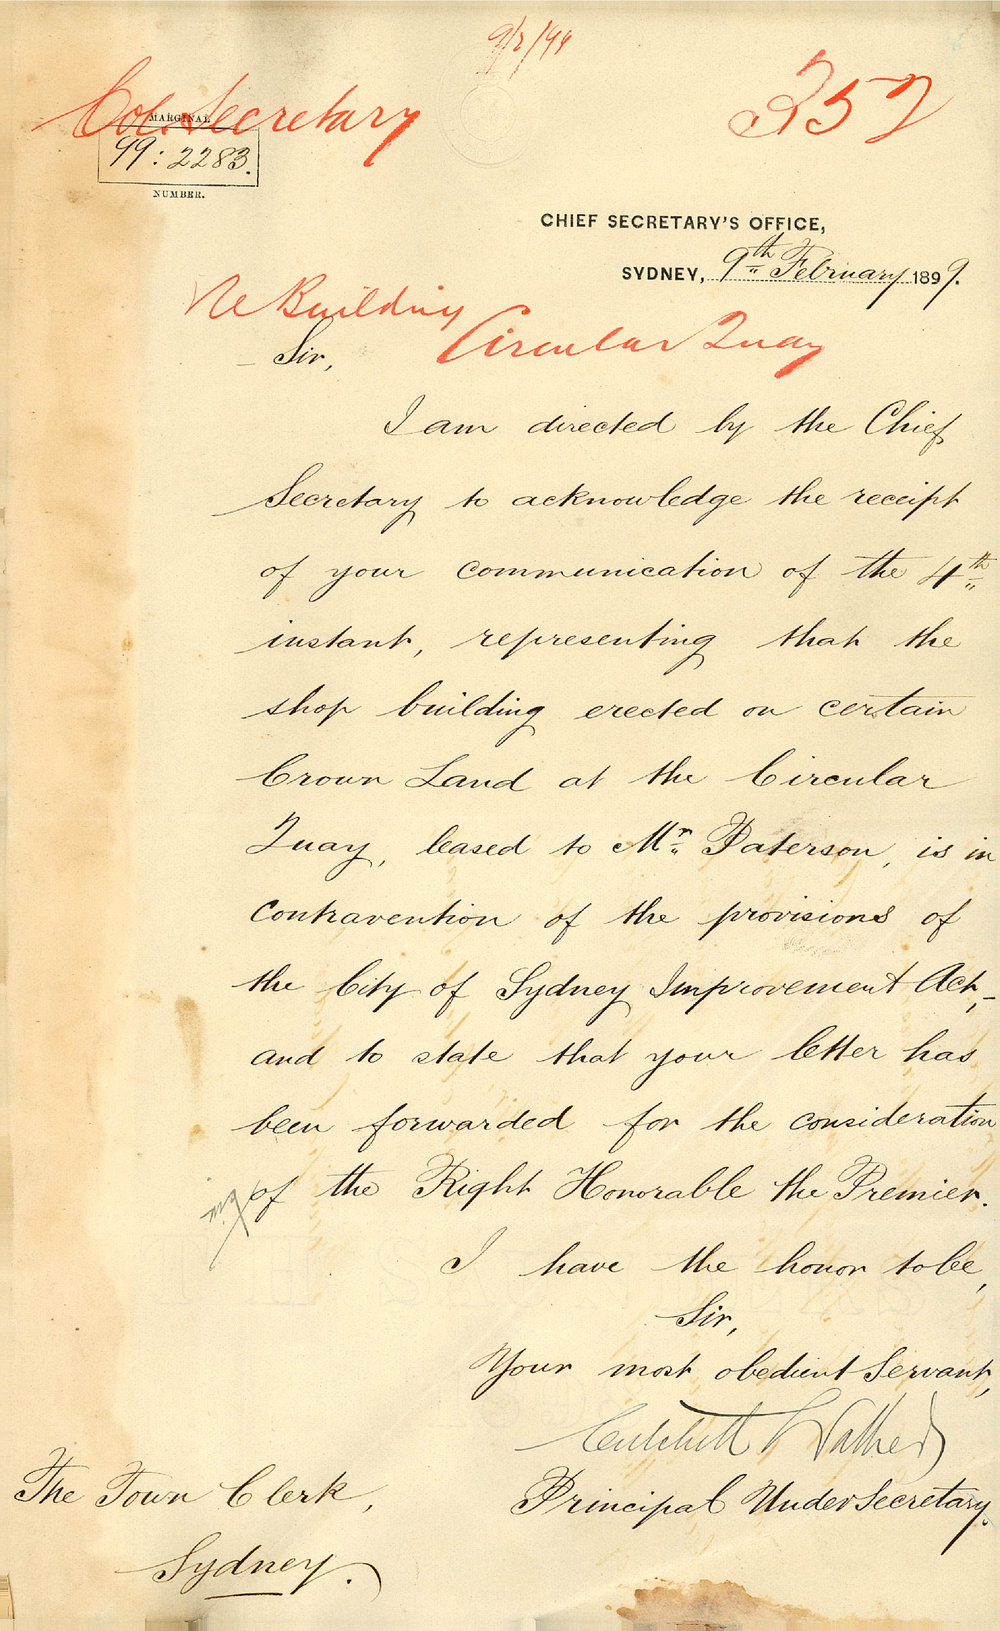 9/2/99
Col. Secretary
352
MARGINAL
99:2283.
NUMBER.
CHIEF SECRETARY'S OFFICE,
SYDNEY, 9th February 1899.
Re Building
Circular Quay
Sir,
I am directed by the Chief
Secretary to acknowledge the receipt
of your communication of the 4th
instant, representing that the
shop building erected on certain
Crown Land at the Circular
Quay, leased to Mr. Paterson, is in
contravention of the provisions of
the City of Sydney Improvement Act,-
and to state that your letter has
been forwarded for the consideration
of the Right Honorable the Premier.
I have the honor to be,
Sir,
Your most obedient Servant,
Critchett Walker
Principal Under Secretary.
The Town Clerk,
Sydney.